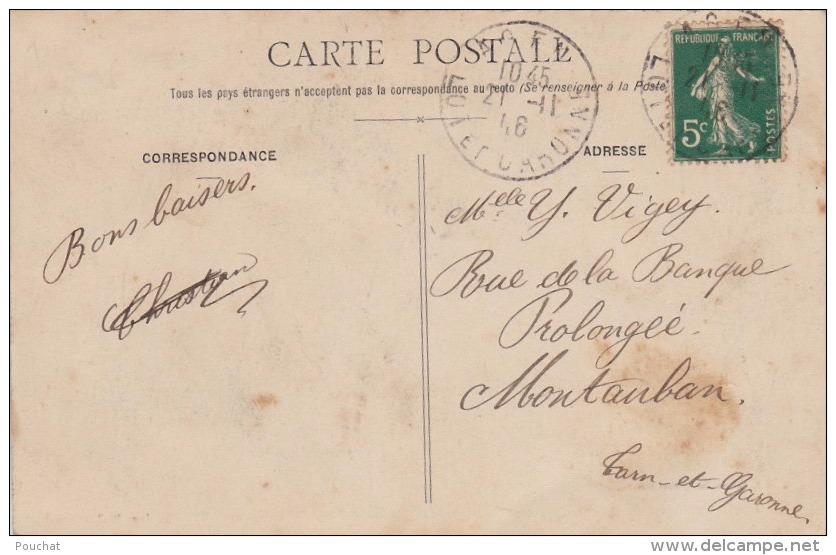 CARTE POSTALE
Tous les pays étrangers n'acceptent pas la correspondance au recto (Se renseigner à la Poste)
AGEN
10 45
21 -11
LOT ET GARONNE
REPUBLIQUE FRANÇAISE
5c
POSTES
CORRESPONDANCE
ADRESSE
Bons baisers.
Christian
Melle Y. Vigey.
Rue de la Banque
Prolongée.
Montauban.
Tarn-et-Garonne.
Pouchat
www.delcampe.net